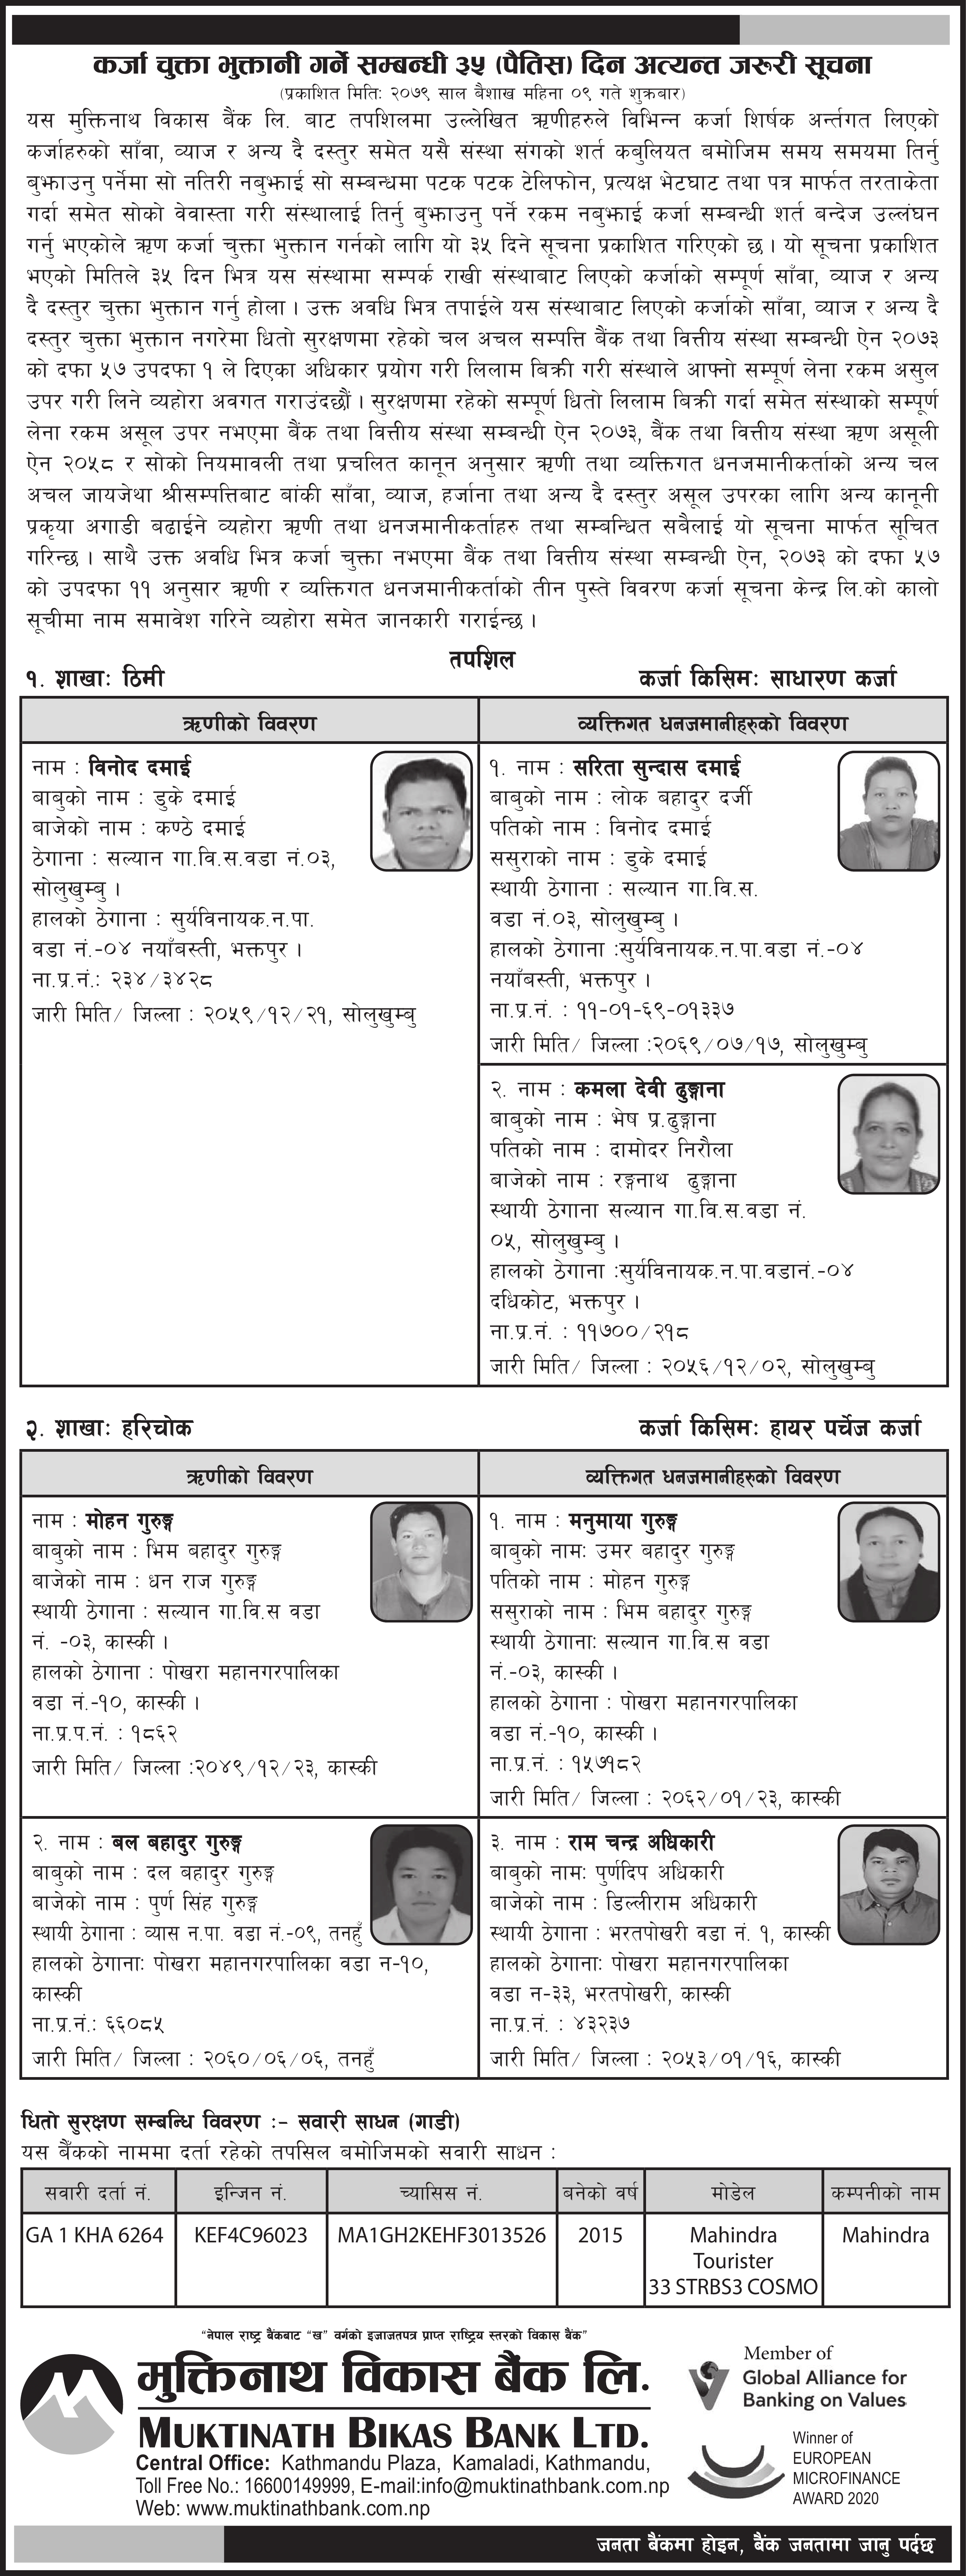 कर्जा चुक्ता भुक्तानी गर्ने सम्बन्धी ३५ (पैंतिस) दिन अत्यन्त जरूरी सूचना
(प्रकाशित मितिः २०७९ साल बैशाख महिना ०९ गते शुक्रबार)
यस मुक्तिनाथ विकास बैंक लि. बाट तपशिलमा उल्लेखित ऋणीहरुले विभिन्न कर्जा शिर्षक अर्न्तगत लिएको
कर्जाहरुको साँवा, व्याज र अन्य दै दस्तुर समेत यसै संस्था संगको शर्त कबुलियत बमोजिम समय समयमा तिर्नु
बुझाउनु पर्नेमा सो नतिरी नबुझाई सो सम्बन्धमा पटक पटक टेलिफोन, प्रत्यक्ष भेटघाट तथा पत्र मार्फत तरताकेता
गर्दा समेत सोको वेवास्ता गरी संस्थालाई तिर्नु बुझाउनु पर्ने रकम नबुझाई कर्जा सम्बन्धी शर्त बन्देज उल्लंघन
गर्नु भएकोले ऋण कर्जा चुक्ता भुक्तान गर्नको लागि यो ३५ दिने सूचना प्रकाशित गरिएको छ । यो सूचना प्रकाशित
भएको मितिले ३५ दिन भित्र यस संस्थामा सम्पर्क राखी संस्थाबाट लिएको कर्जाको सम्पूर्ण साँवा, व्याज र अन्य
दै दस्तुर चुक्ता भुक्तान गर्नु होला । उक्त अवधि भित्र तपाईले यस संस्थाबाट लिएको कर्जाको साँवा, व्याज र अन्य दै
दस्तुर चुक्ता भुक्तान नगरेमा धितो सुरक्षणमा रहेको चल अचल सम्पत्ति बैंक तथा वित्तीय संस्था सम्बन्धी ऐन २०७३
को दफा ५७ उपदफा १ ले दिएका अधिकार प्रयोग गरी लिलाम बिक्री गरी संस्थाले आफ्नो सम्पूर्ण लेना रकम असुल
उपर गरी लिने व्यहोरा अवगत गराउंदछौं । सुरक्षणमा रहेको सम्पूर्ण धितो लिलाम बिक्री गर्दा समेत संस्थाको सम्पूर्ण
लेना रकम असूल उपर नभएमा बैंक तथा वित्तीय संस्था सम्बन्धी ऐन २०७३, बैंक तथा वित्तीय संस्था ऋण असूली
ऐन २०५८ र सोको नियमावली तथा प्रचलित कानून अनुसार ऋणी तथा व्यक्तिगत धनजमानीकर्ताको अन्य चल
अचल जायजेथा श्रीसम्पत्तिबाट बांकी साँवा, व्याज, हर्जाना तथा अन्य दै दस्तुर असूल उपरका लागि अन्य कानूनी
प्रकृया अगाडी बढाईने व्यहोरा ऋणी तथा धनजमानीकर्ताहरु तथा सम्बन्धित सबैलाई यो सूचना मार्फत सूचित
गरिन्छ । साथै उक्त अवधि भित्र कर्जा चुक्ता नभएमा बैंक तथा वित्तीय संस्था सम्बन्धी ऐन, २०७३ को दफा ५७
को उपदफा ११ अनुसार ऋणी र व्यक्तिगत धनजमानीकर्ताको तीन पुस्ते विवरण कर्जा सूचना केन्द्र लि.को कालो
सूचीमा नाम समावेश गरिने व्यहोरा समेत जानकारी गराईन्छ ।
तपशिल
१. शाखाः ठिमी
कर्जा किसिमः साधारण कर्जा
ऋणीको विवरण
व्यक्तिगत धनजमानीहरुको विवरण
नाम : विनोद दमाई
बाबुको नाम : डुके दमाई
बाजेको नाम : कण्ठे दमाई
ठेगाना : सल्यान गा.वि.स.वडा नं.०३,
सोलुखुम्बु ।
हालको ठेगाना : सुर्यविनायक.न.पा.
वडा नं.-०४ नयाँबस्ती, भक्तपुर ।
ना.प्र.नं.: २३४/३४२८
जारी मिति/ जिल्ला : २०५९/१२/२१, सोलुखुम्बु
१. नाम : सरिता सुन्दास दमाई
बाबुको नाम : लोक बहादुर दर्जी
पतिको नाम : विनोद दमाई
ससुराको नाम : डुके दमाई
स्थायी ठेगाना : सल्यान गा.वि.स.
वडा नं.०३, सोलुखुम्बु ।
हालको ठेगाना :सुर्यविनायक.न.पा.वडा नं.-०४
नयाँबस्ती, भक्तपुर ।
ना.प्र.नं. : ११-०१-६९-०१३३७
जारी मिति/ जिल्ला :२०६९/०७/१७, सोलुखुम्बु
२. नाम : कमला देवी ढुङ्गाना
बाबुको नाम : भेष प्र.ढुङ्गाना
पतिको नाम : दामोदर निरौला
बाजेको नाम : रङ्गनाथ ढुङ्गाना
स्थायी ठेगाना सल्यान गा.वि.स.वडा नं.
०५, सोलुखुम्बु ।
हालको ठेगाना :सुर्यविनायक.न.पा.वडानं.-०४
दधिकोट, भक्तपुर ।
ना.प्र.नं. : ११७००/२१८
जारी मिति/ जिल्ला : २०५६/१२/०२, सोलुखुम्बु
२. शाखाः हरिचोक
कर्जा किसिमः हायर पर्चेज कर्जा
ऋणीको विवरण
व्यक्तिगत धनजमानीहरुको विवरण
नाम : मोहन गुरुङ्ग
बाबुको नाम : भिम बहादुर गुरुङ्ग
बाजेको नाम : धन राज गुरुङ्ग
स्थायी ठेगाना : सल्यान गा.वि.स वडा
नं. -०३, कास्की ।
हालको ठेगाना : पोखरा महानगरपालिका
वडा नं.-१०, कास्की ।
ना.प्र.प.नं. : १८६२
जारी मिति/ जिल्ला :२०४९/१२/२३, कास्की
१. नाम : मनुमाया गुरुङ्ग
बाबुको नामः उमर बहादुर गुरुङ्ग
पतिको नाम : मोहन गुरुङ्ग
ससुराको नाम : भिम बहादुर गुरुङ्ग
स्थायी ठेगानाः सल्यान गा.वि.स वडा
नं.-०३, कास्की ।
हालको ठेगाना : पोखरा महानगरपालिका
वडा नं.-१०, कास्की ।
ना.प्र.नं. : १५७१८२
जारी मिति/ जिल्ला : २०६२/०१/२३, कास्की
२. नाम : बल बहादुर गुरुङ्ग
बाबुको नाम : दल बहादुर गुरुङ्ग
बाजेको नाम : पुर्ण सिंह गुरुङ्ग
स्थायी ठेगाना : व्यास न.पा. वडा नं.-०९, तनहुँ
हालको ठेगानाः पोखरा महानगरपालिका वडा न-१०,
कास्की
ना.प्र.नं.: ६६०८५
जारी मिति/ जिल्ला : २०६०/०६/०६, तनहुँ
३. नाम : राम चन्द्र अधिकारी
बाबुको नामः पुर्णदिप अधिकारी
बाजेको नाम : डिल्लीराम अधिकारी
स्थायी ठेगाना : भरतपोखरी वडा नं. १, कास्की
हालको ठेगानाः पोखरा महानगरपालिका
वडा न-३३, भरतपोखरी, कास्की
ना.प्र.नं. : ४३२३७
जारी मिति/ जिल्ला : २०५३/०१/१६, कास्की
धितो सुरक्षण सम्बन्धि विवरण :- सवारी साधन (गाडी)
यस बैँकको नाममा दर्ता रहेको तपसिल बमोजिमको सवारी साधन :
सवारी दर्ता नं. इन्जिन नं. च्यासिस नं. बनेको वर्ष मोडेल कम्पनीको नाम
GA 1 KHA 6264 KEF4C96023 MA1GH2KEHF3013526 2015 Mahindra Mahindra
Tourister
33 STRBS3 COSMO
“नेपाल राष्ट्र बैंकबाट “ख” वर्गको इजाजतपत्र प्राप्त राष्ट्रिय स्तरको विकास बैंक”
मुक्तिनाथ विकास बैंक लि.
MUKTINATH BIKAS BANK LTD.
Central Office: Kathmandu Plaza, Kamaladi, Kathmandu,
Toll Free No.: 16600149999, E-mail:info@muktinathbank.com.np
Web: www.muktinathbank.com.np
Member of
Global Alliance for
Banking on Values
Winner of
EUROPEAN
MICROFINANCE
AWARD 2020
जनता बैंकमा होइन, बैंक जनतामा जानु पर्दछ